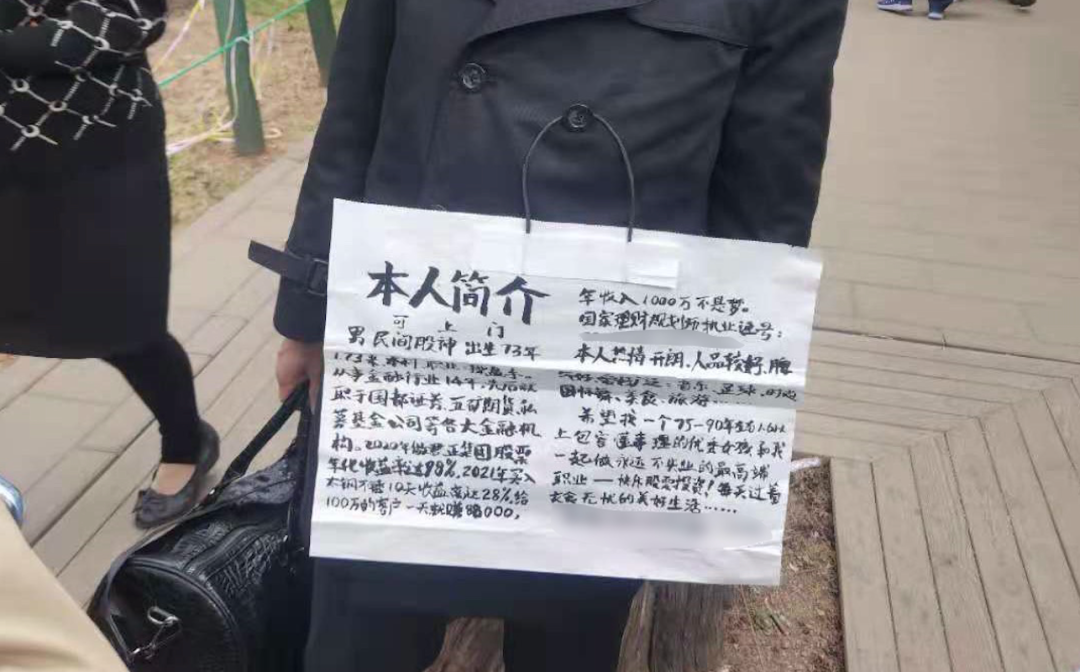 本人简介
可上门
男 民间股神 出生73年
1.73米 本科 职业:操盘手。
从事金融行业14年,先后就
职于国都证券、五矿期货、私
募基金公司等各大金融机
构。2020年做君正集团股票
年化收益率达98%,2021年买入
太钢不锈10天收益高达28%,给
100万的客户一天就赚88000,
年收入1000万不是梦。
国家理财规划师执业证号:
本人热情开朗、人品较好、脾
音乐、足球、
国标舞、美食、旅游……
希望找一个75-90年
上包容 懂事理的优秀女孩和我
一起做永远不失业的最高端
职业——快乐股票投资!每天过着
衣食无忧的美好生活……